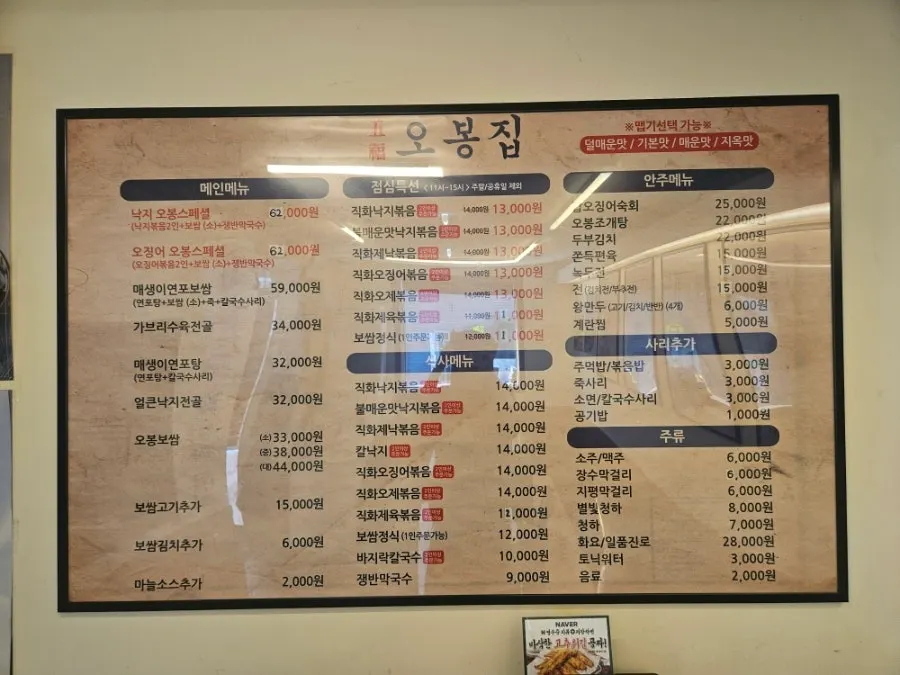 五福 오봉집
※맵기선택 가능※
덜매운맛 / 기본맛 / 매운맛 / 지옥맛
메인메뉴
낙지 오봉스페셜 62,000원
(낙지볶음2인+보쌈 (소)+쟁반막국수)
오징어 오봉스페셜 62,000원
(오징어볶음2인+보쌈 (소)+쟁반막국수)
매생이연포보쌈 59,000원
(연포탕+보쌈 (소)+죽+칼국수사리)
가브리수육전골 34,000원
매생이연포탕 32,000원
(연포탕+칼국수사리)
얼큰낙지전골 32,000원
오봉보쌈 (소)33,000원
(중)38,000원
(대)44,000원
보쌈고기추가 15,000원
보쌈김치추가 6,000원
마늘소스추가 2,000원
점심특선 < 11시~15시 > 주말/공휴일 제외
직화낙지볶음 2인이상 주문가능 14,000원 13,000원
불매운맛낙지볶음 14,000원 13,000원
직화제낙볶음 14,000원 13,000원
직화오징어볶음 14,000원 13,000원
직화오제볶음 14,000원 13,000원
직화제육볶음 11,000원
보쌈정식 (1인주문가능) 12,000원
식사메뉴
직화낙지볶음 2인이상 주문가능 14,000원
불매운맛낙지볶음 2인이상 주문가능 14,000원
직화제낙볶음 2인이상 주문가능 14,000원
칼낙지 2인이상 주문가능 14,000원
직화오징어볶음 2인이상 주문가능 14,000원
직화오제볶음 2인이상 주문가능 14,000원
직화제육볶음 2인이상 주문가능
보쌈정식 (1인주문가능) 12,000원
바지락칼국수 2인이상 주문가능 10,000원
쟁반막국수 9,000원
안주메뉴
25,000원
오봉조개탕 22,000원
두부김치 22,000원
쫀득편육 15,000원
녹두전 15,000원
전 (김치전/부추전) 15,000원
왕만두 (고기/김치/반반) (4개) 6,000원
계란찜 5,000원
사리추가
주먹밥/볶음밥 3,000원
죽사리 3,000원
소면/칼국수사리 3,000원
공기밥 1,000원
주류
소주/맥주 6,000원
장수막걸리 6,000원
지평막걸리 6,000원
별빛청하 8,000원
청하 7,000원
화요/일품진로 28,000원
토닉워터 3,000원
음료 2,000원
NAVER
바삭한 고추튀김